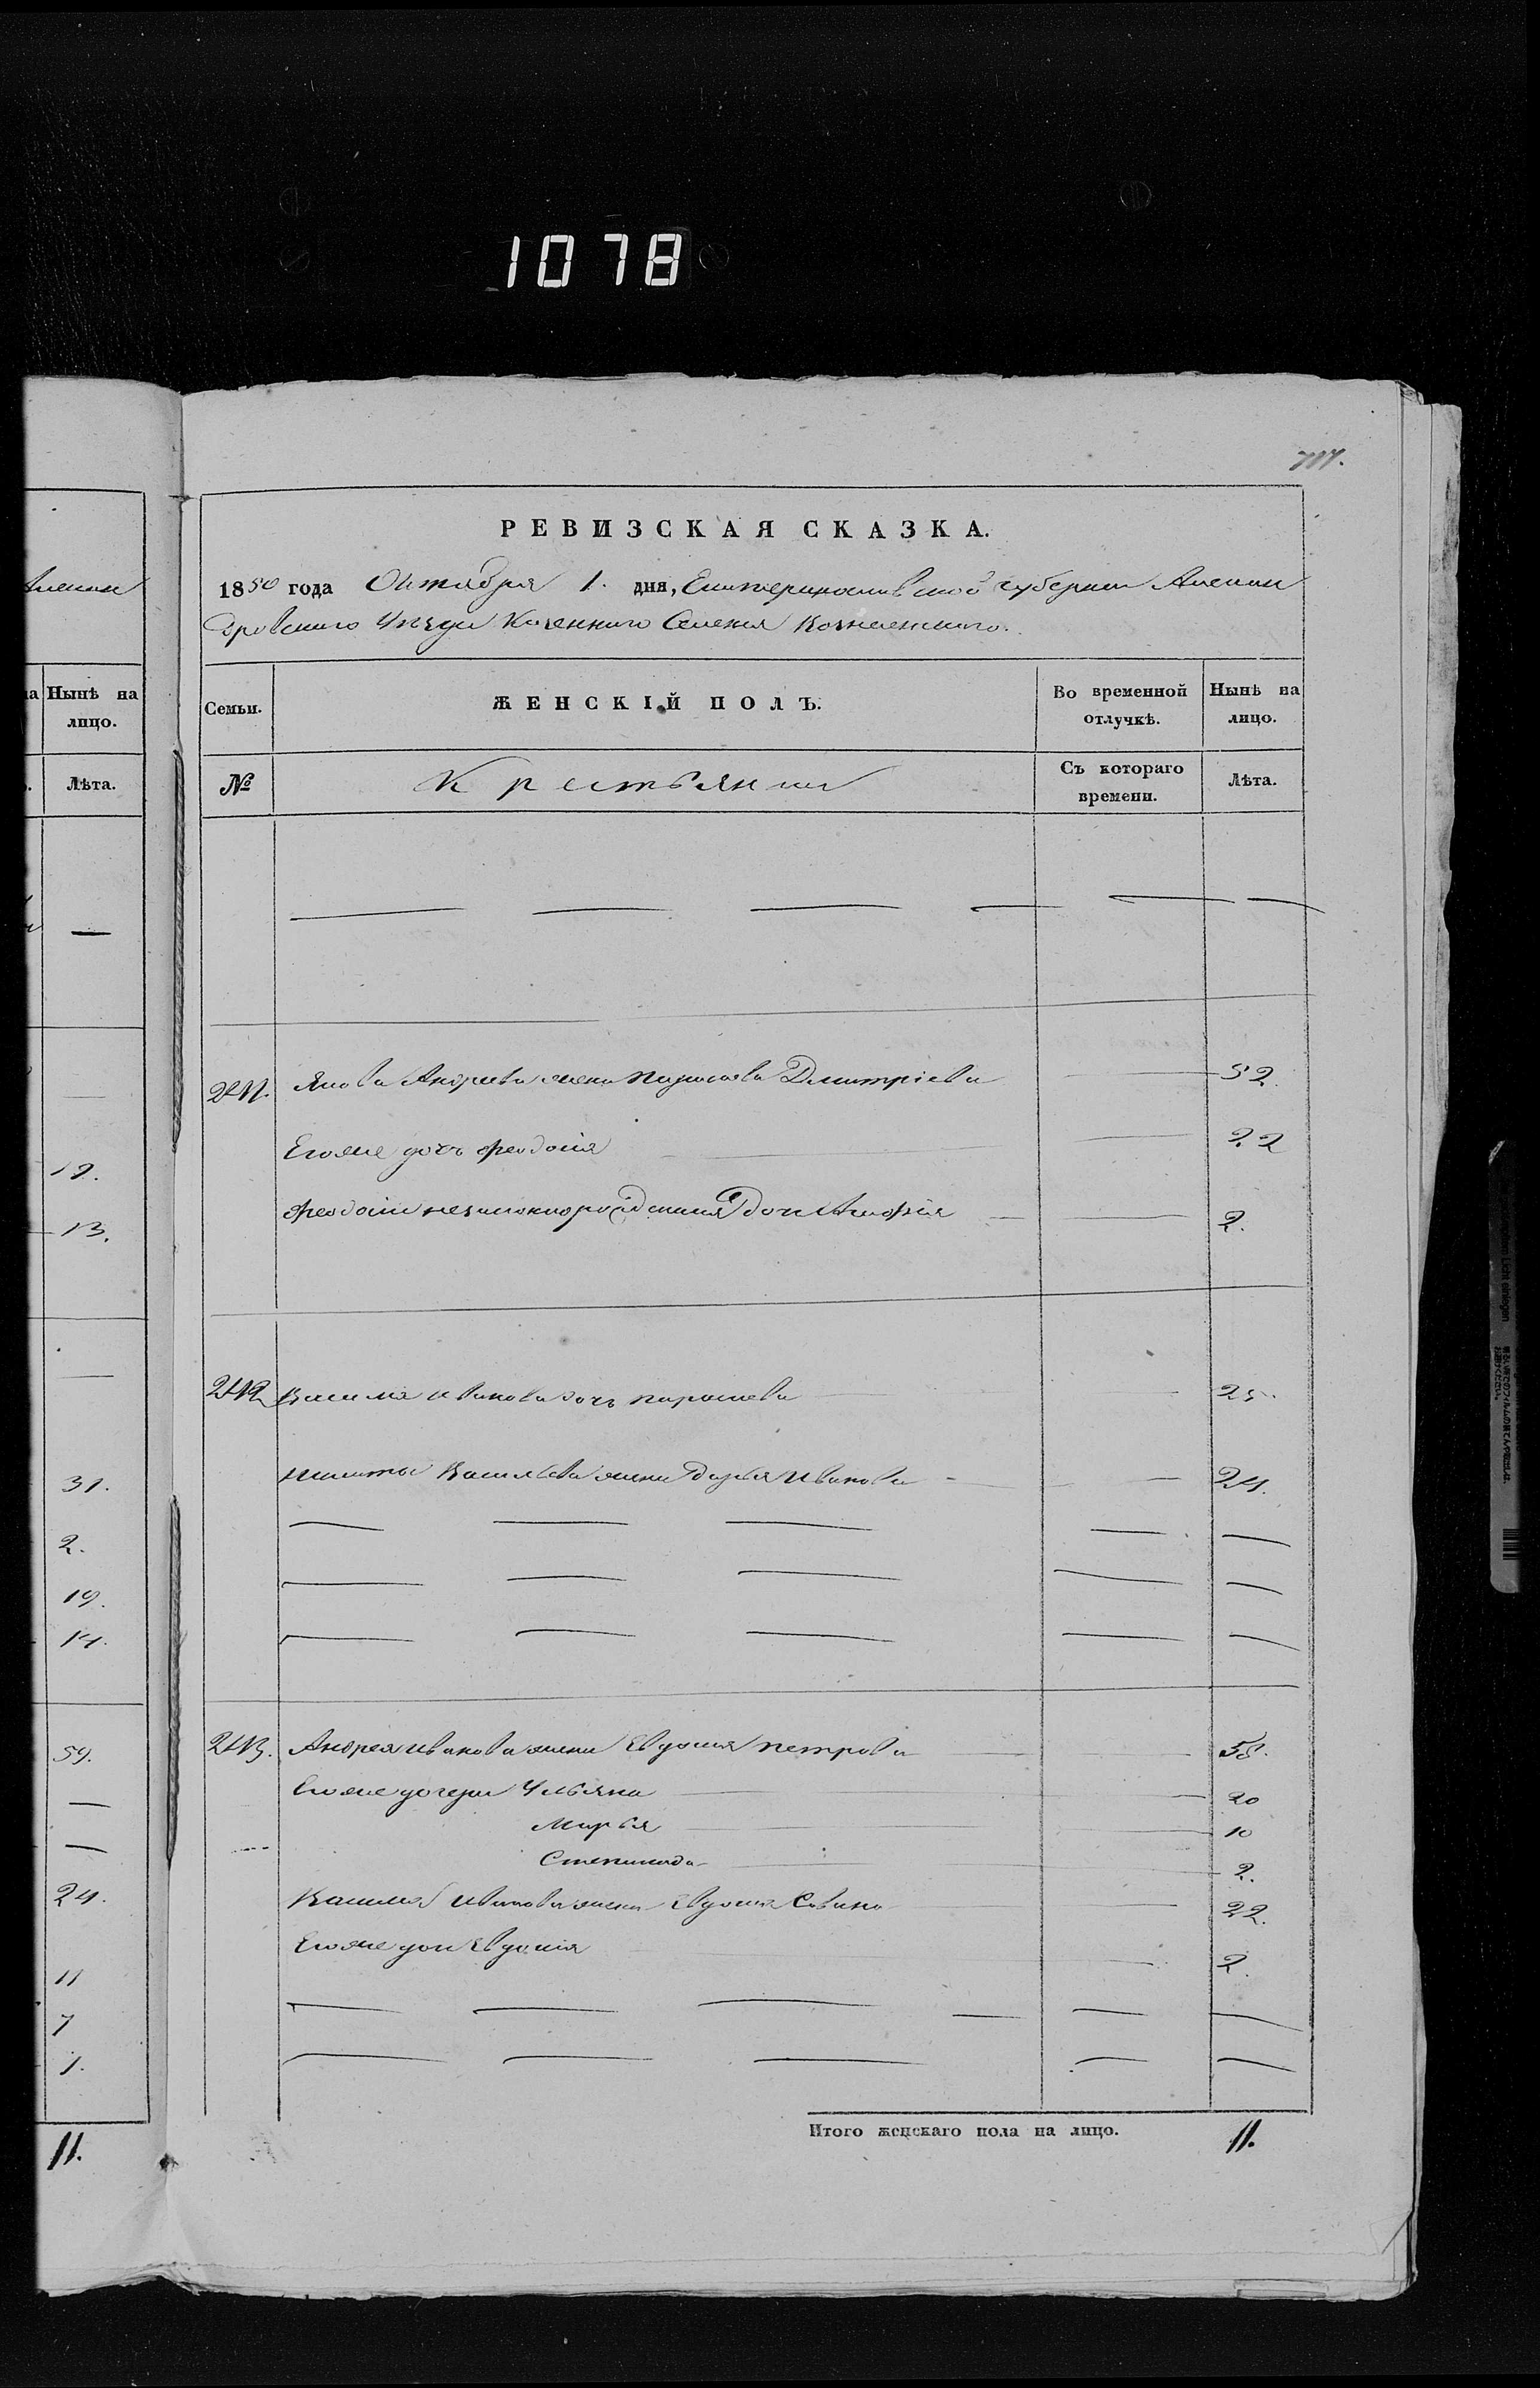 1078
717.
РЕВИЗСКАЯ СКАЗКА.
1850 года Октября 1. дня, Екатеринославской губерніи Алексан
дровскаго Уѣзда Казеннаго Селенія Вознесенскаго.
Семьи.
ЖЕНСКІЙ ПОЛЪ.
Во временной отлучкѣ.
Нынѣ на лицо.
№
Крестьянки
Съ котораго времени.
Лѣта.
241. Якова Андреева жена Параскева Дмитріева 52.
Егоже дочь Феодосія 22
Феодосіи незаконнорожденная дочь 2.
242 Василия Иванова дочь Параскева 25.
Никиты Васильева жена Дарья Иванова 24.
243. Андрея Иванова жена Евдокия Петрова 58.
Егоже дочери Ульяна 20
Марья 10
Степанида 2.
Василия Иванова жена Евдокия Савина 22.
Егоже дочь Евдокия 2.
Итого женскаго пола на лицо. 11.
Алексан
Нынѣ на лицо.
Лѣта.
12.
13.
31.
2.
19.
14.
59.
24.
11
7
1.
11.